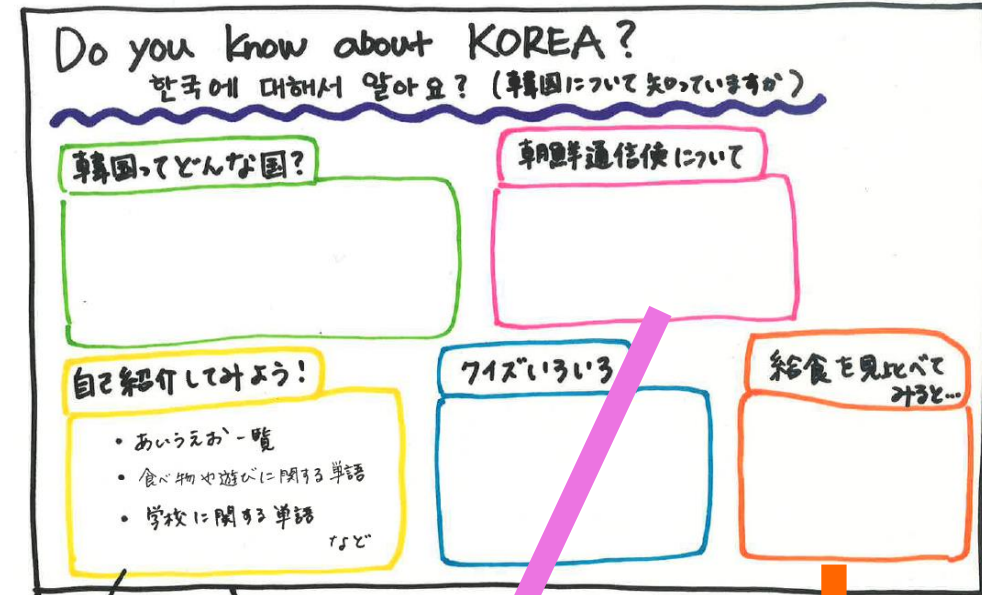 Do you know about KOREA?
한국에 대해서 알아요? (韓国について知っていますか)
韓国ってどんな国?
朝鮮通信使について
自己紹介してみよう!
・あいうえお一覧
・食べ物や遊びに関する単語
・学校に関する単語
など
クイズいろいろ
給食を見比べて
みると…